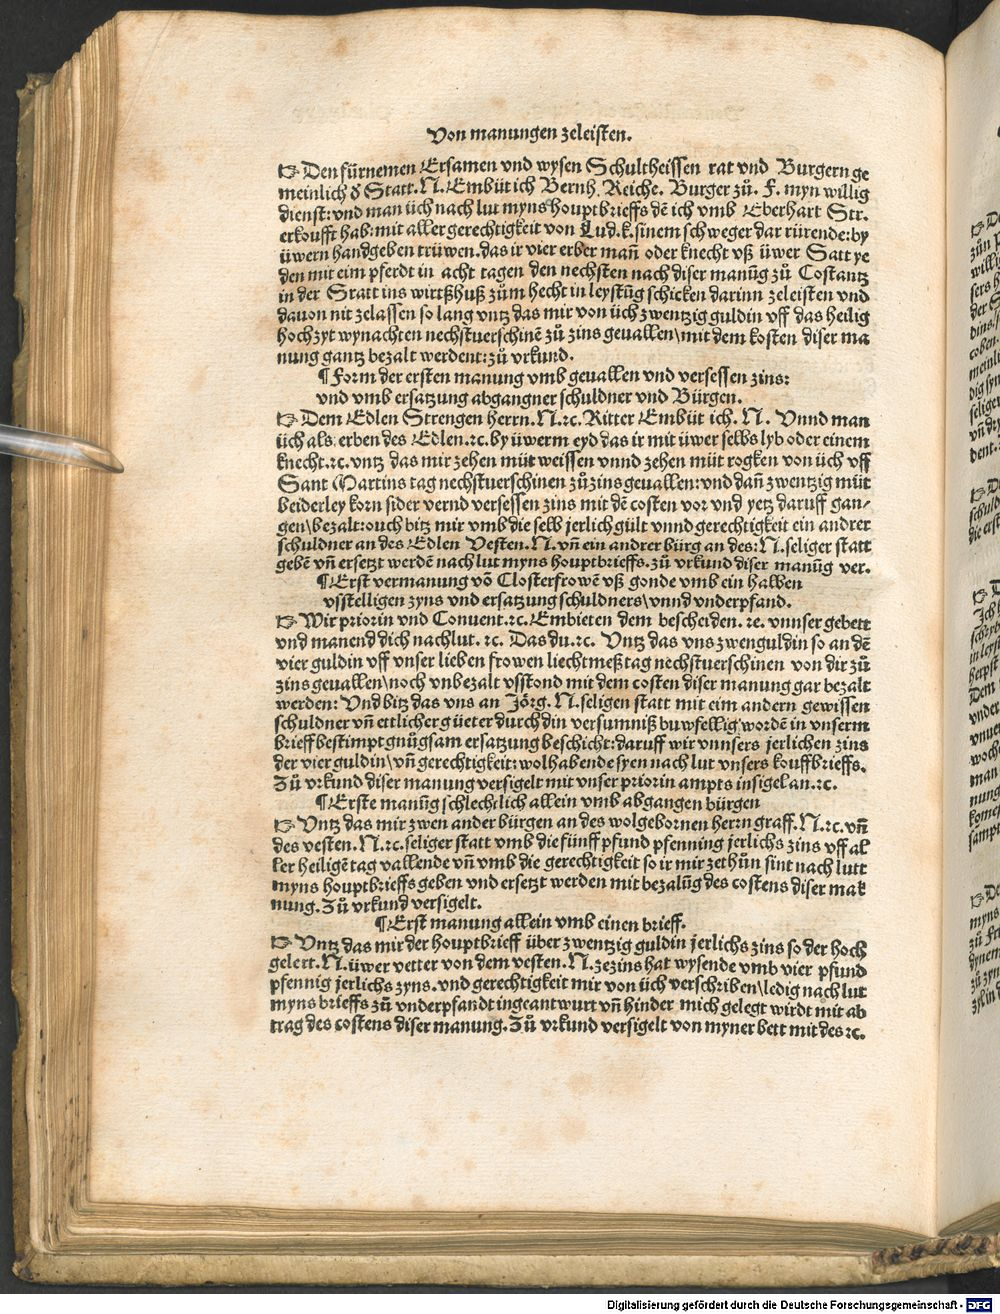 Von manungen zeleisten.
☞ Den fürnemen Ersamen vnd wysen Schultheissen rat vnd Burgern ge
meinlich ð Statt. N. Embüt ich Bernh. Reiche. Burger zů. F. myn willig
dienst: vnd man üch nach lut myns houptbrieffs dē ich vmb Eberhart Str.
erkoufft hab: mit aller gerechtigkeit von Lud. k. sinem schweger dar rürende: by
üwern handgeben trüwen. das ir vier erber man̄ oder knecht vß üwer Satt ye
den mit eim pferdt in acht tagen den nechsten nach diser manūg zů Costantz
in der Sratt ins wirtßhuß zům hecht in leystūg schicken darinn zeleisten vnd
dauon nit zelassen so lang vntz das mir von üch zwentzig guldin vff das heilig
hochzyt wynachten nechstuerschinē zů zins geuallen\mit dem kosten diser ma
nung gantz bezalt werdent: zů vrkund.
¶ Form der ersten manung vmb geuallen vnd versessen zins:
vnd vmb ersatzung abgangner schuldner vnd Bürgen.
☞ Dem Edlen Strengen herrn. N. ꝛc. Ritter Embüt ich. N. Vnnd man
üch als erben des Edlen. ꝛc. by üwerm eyd das ir mit üwer selbs lyb oder einem
knecht. ꝛc. vntz das mir zehen müt weissen vnnd zehen müt rogken von üch vff
Sant Martins tag nechstuerschinen zů zins geuallen: vnd dan̄ zwentzig müt
beiderley korn sider vernd versessen zins mit dē costen vor vnd yetz daruff gan-
gen\bezalt: ouch bitz mir vmb die selb jerlich gült vnnd gerechtigkeit ein andrer
schuldner an des Edlen Vesten. N. vn̄ ein andrer bürg an des: N. seliger statt
gebē vn̄ ersetzt werdē nach lut myns houptbrieffs. zů vrkund diser manūg ver.
¶ Erst vermanung vō Closterfrowē vß gonde vmb ein halben
vsstelligen zyns vnd ersatzung schuldners\vnnd vnderpfand.
☞ Wir priorin vnd Conuent. ꝛc. Embieten dem bescheiden. ꝛe. vnnser gebett
vnd manend dich nachlut. ꝛc. Das du. ꝛc. Vntz das vns zwen guldin so an dē
vier guldin vff vnser lieben frowen liechtmeß tag nechstuerschinen von dir zů
zins geuallen\noch vnbezalt vsstond mit dem costen diser manung gar bezalt
werden: Vnd bitz das vns an Jörg. N. seligen statt mit eim andern gewissen
schuldner vn̄ ettlicher güeter durch din versumniß buwfellig wordē in vnserm
brieff bestimpt gnůgsam ersatzung beschicht: daruff wir vnnsers jerlichen zins
der vier guldin\vn̄ gerechtigkeit: wol habende syen nach lut vnsers kouffbrieffs.
Zů vrkund diser manung versigelt mit vnser priorin ampts insigel an. ꝛc.
¶ Erste manūg schlechtlich allein vmb abgangen bürgen
☞ Vntz das mir zwen ander bürgen an des wolgebornen herrn graff. N. ꝛc. vn̄
des vesten. N. ꝛc. seliger statt vmb die fünff pfund pfenning jerlichs zins vff al
ler heiligē tag vallende vn̄ vmb die gerechtigkeit so ir mir zethůn sint nach lutt
myns houptbrieffs geben vnd ersetzt werden mit bezalūg des costens diser mak
nung. Zů vrkund versigelt.
¶ Erst manung allein vmb einen brieff.
☞ Vntz das mir der houptbrieff über zwentzig guldin jerlichs zins so der hoch
gelert. N. üwer vetter von dem vesten. N. ze zins hat wysende vmb vier pfund
pfennig jerlichs zyns. vnd gerechtigkeit mir von üch verschriben\ledig nach lut
myns brieffs zū vnderpfandt ingeantwurt vn̄ hinder mich gelegt wirdt mit ab
trag des costens diser manung. Zů vrkund versigelt von myner bett mit des ꝛc.
Digitalisierung gefördert durch die Deutsche Forschungsgemeinschaft - DFG